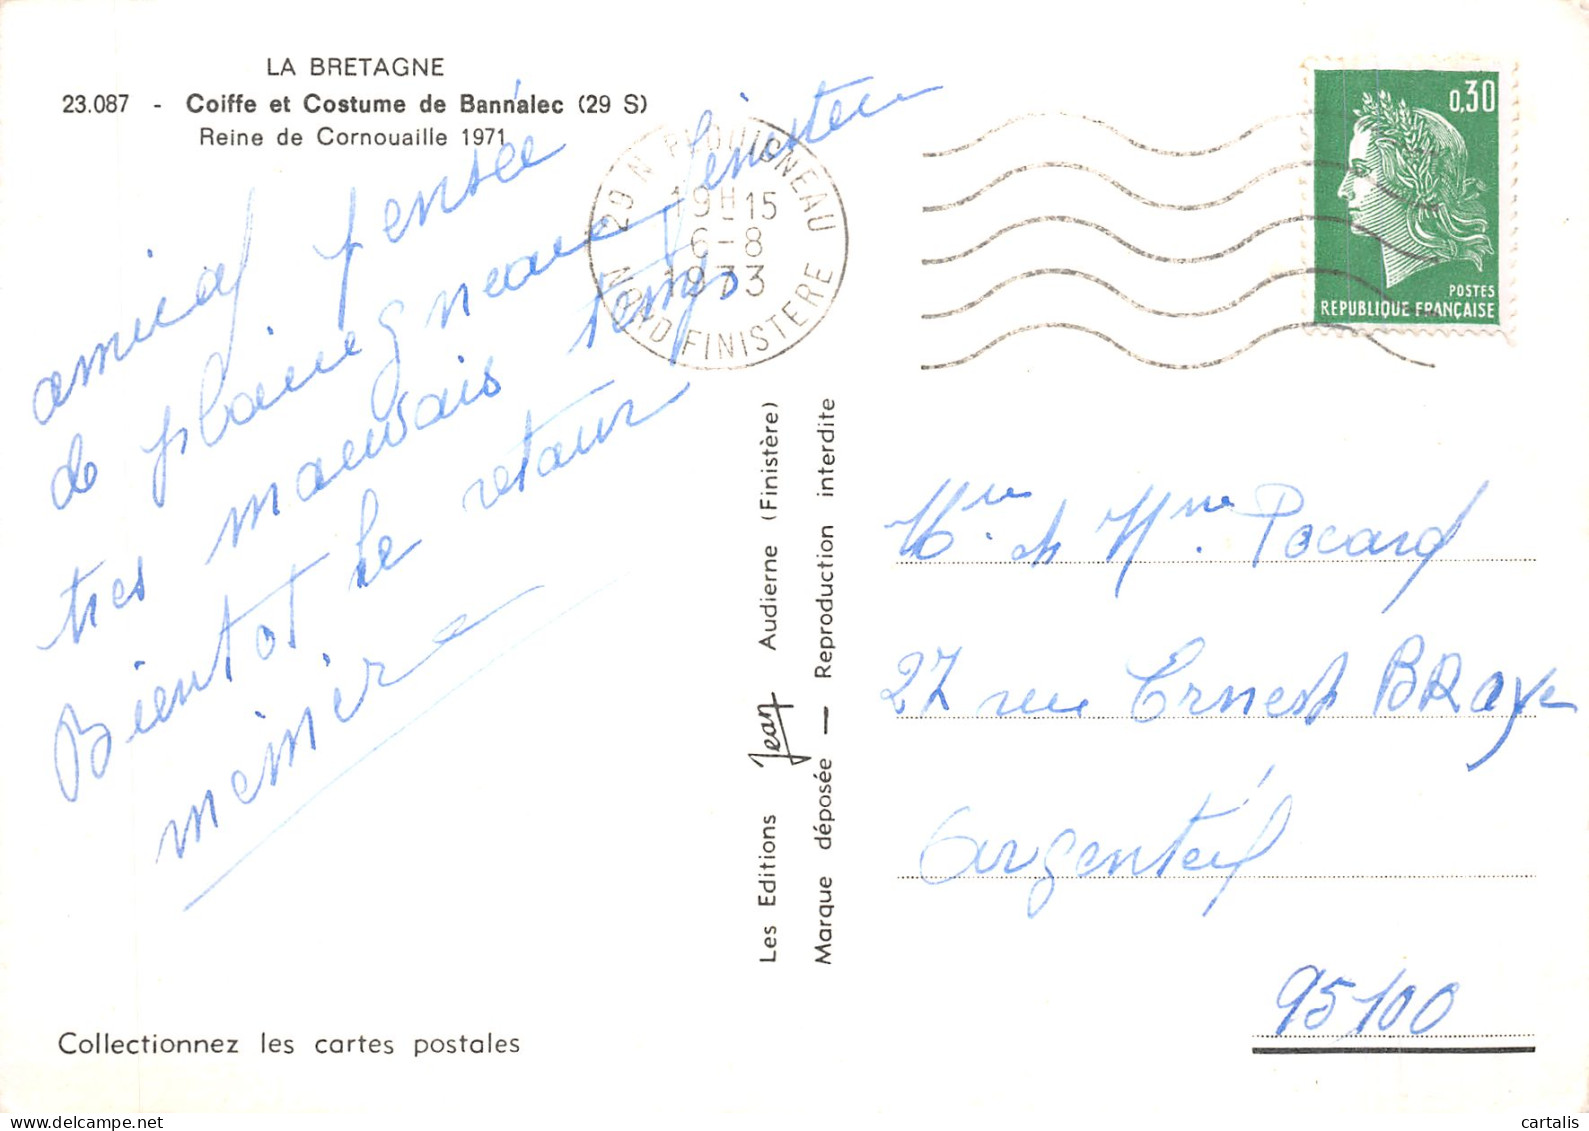 LA BRETAGNE
23.087 - Coiffe et Costume de Bannalec (29 S)
Reine de Cornouaille 1971
amical pensée
de plouegneau finisteu
tres mauvais temps
Bientot le retour
mémère
29 N PLOUIGNEAU
19H-15
6-8
1973
NORD FINISTERE
0,30
POSTES
REPUBLIQUE FRANÇAISE
Les Editions Jean Audierne (Finistère)
Marque déposée — Reproduction interdite
Mme Pocard
27 rue Ernest BRaye
Argenteuil
95100
Collectionnez les cartes postales
cartalis